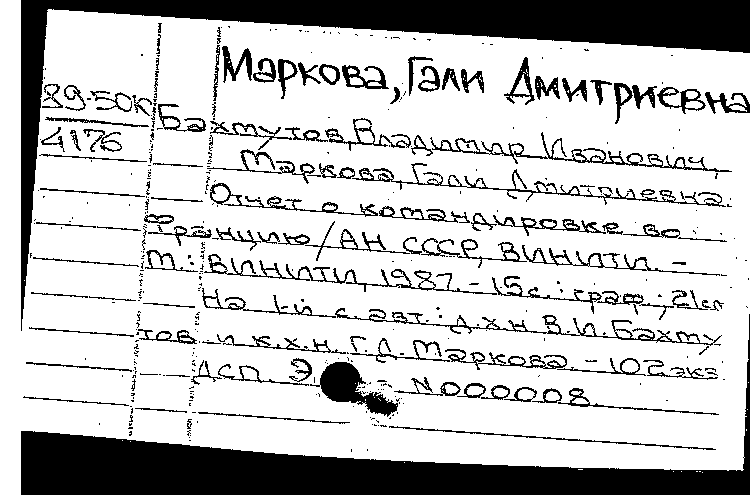 Маркова, Гали Дмитриевна
89-50к
4176
Бахмутов, Владимир Иванович,
Маркова, Гали Дмитриевна.
Отчет о командировке во
Францию / АН СССР, ВИНИТИ. -
М.: ВИНИТИ, 1987. - 15 с.: граф.; 21 см
На 1-й с. авт.: д.х.н. В.И. Бахму
тов и к.х.н. Г.Д. Маркова. - 102 экз
ДСП. Э N 000008.